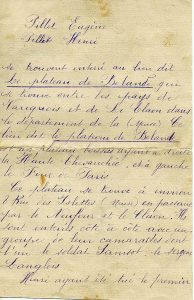 Pillet Eugène
Pillet Henri
se trouvent enterré au lieu dit
Le plateau de Bolande qui
se trouve entre les pays de
et de Le Claon dans
le département de la Meuse Ce
lieu dit le plateau de Boland
est au plateau à droite
la Haute Chevauchée et à gauche
le de Paris
Ce plateau se trouve à environ
des Islettes (Meuse) en passant
par le Neufour et le Claon. Ils
sont enterrés côte à côte avec un
groupe de leur camarades dont
l'un le soldat et le sergent
Langlois
Henri ayant été tué le premier